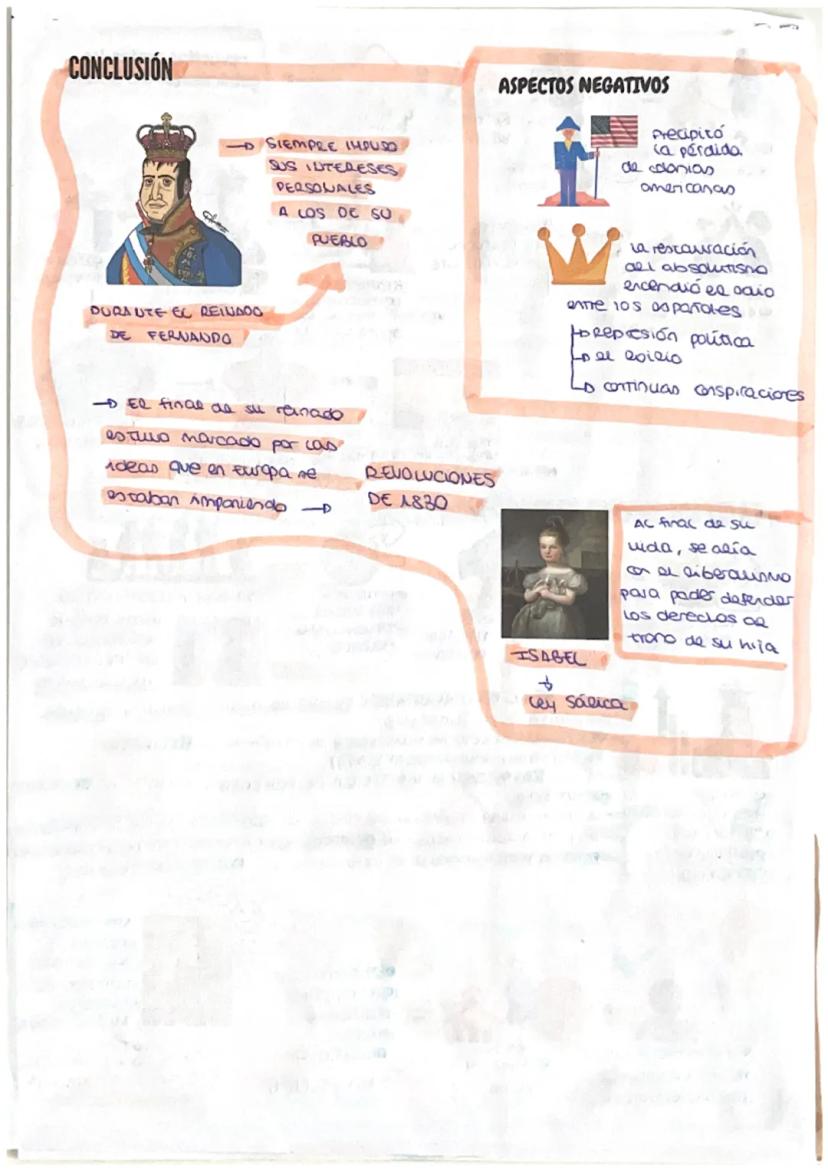 CONCLUSIÓN
→ SIEMPRE IMPUSO
SUS INTERESES
PERSONALES
A LOS DE SU
PUEBLO
DURANTE EL REINADO
DE FERNANDO
→ El final de su reinado
estuvo marcado por las
ideas que en Europa se
estaban imponiendo →
REVOLUCIONES
DE 1830
ASPECTOS NEGATIVOS
Precipitó
la pérdida
de colonias
americanas
La restauración
del absolutismo
encendió el odio
entre los españoles
→ represión política
→ el exilio
→ continuas conspiraciones
Al final de su
vida, se alía
con el liberalismo
para poder defender
los derechos de
trono de su hija
ISABEL
↓
Ley Sálica